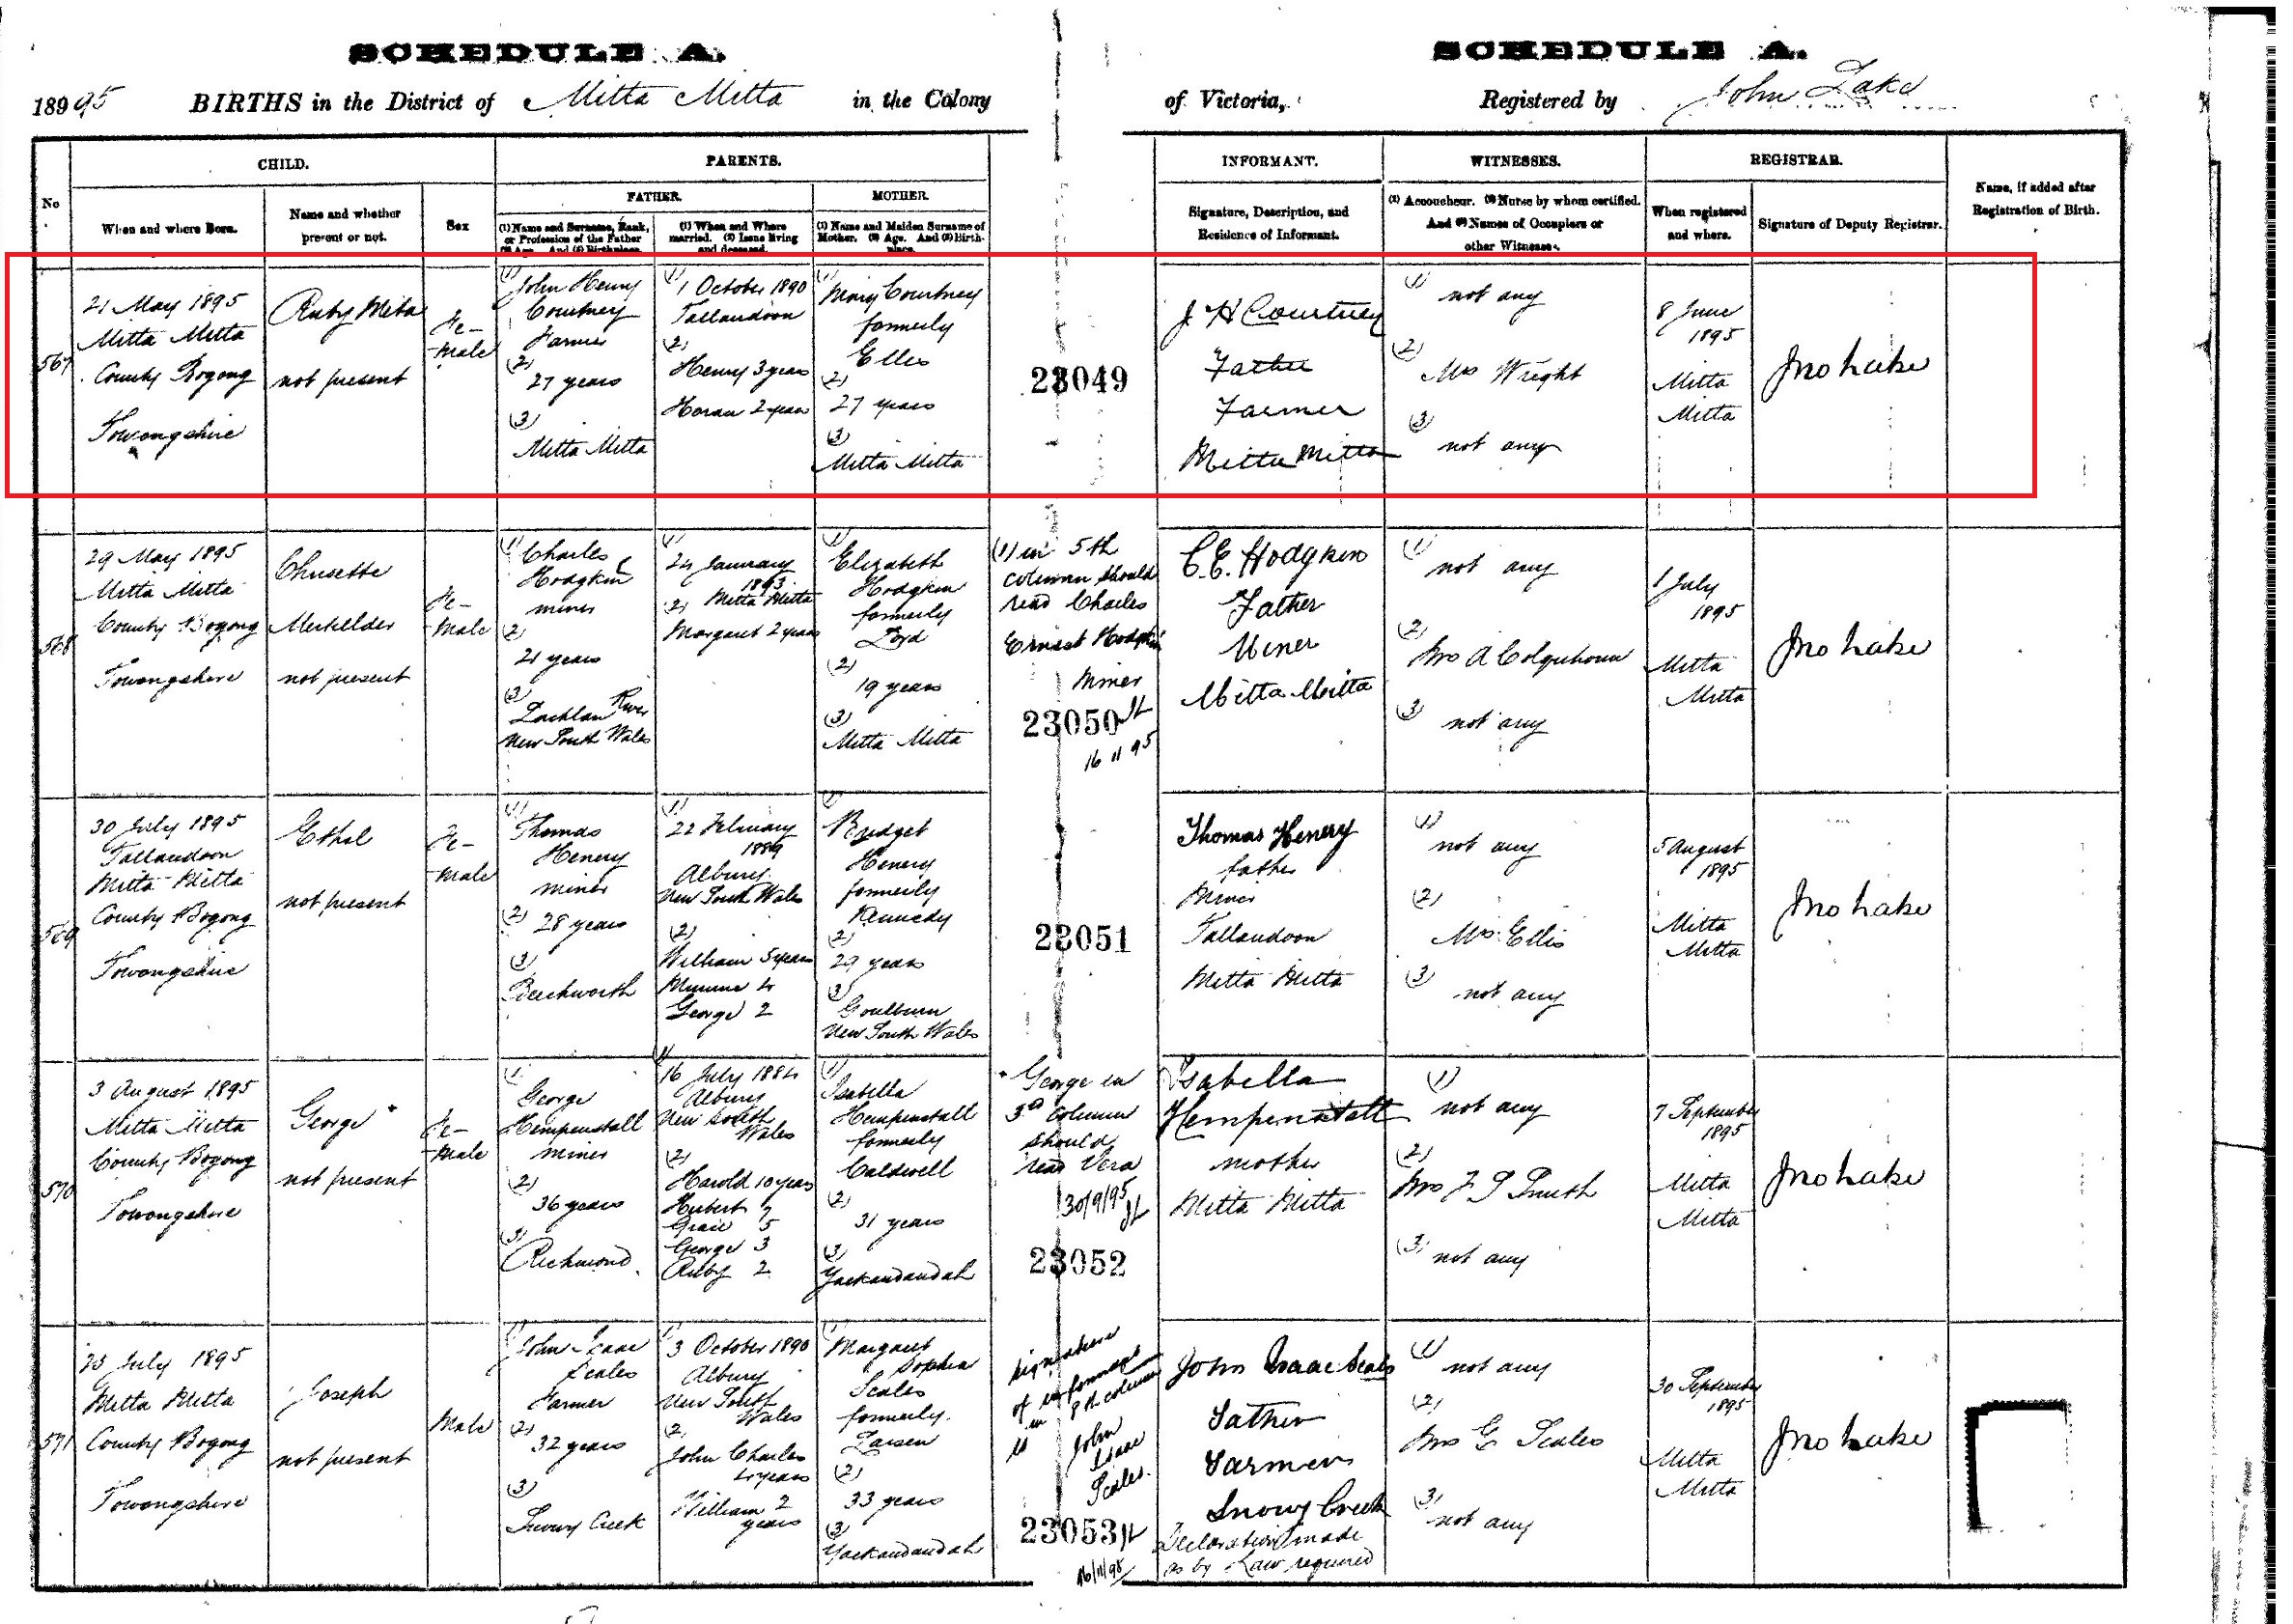 SCHEDULE A.
SCHEDULE A.
1895 BIRTHS in the District of Mitta Mitta in the Colony
of Victoria, Registered by John Lake
No
CHILD.
When and where Born.
Name and whether
present or not.
Sex
PARENTS.
FATHER.
(1) Name and Surname, Rank,
or Profession of the Father
(2) Age. And (3) Birthplace.
(1) When and Where
married. (2) Issue living
and deceased.
MOTHER.
(1) Name and Maiden Surname of
Mother. (2) Age. And (3) Birth-
place.
INFORMANT.
Signature, Description, and
Residence of Informant.
WITNESSES.
(1) Accoucheur. (2) Nurse by whom certified.
And (3) Names of Occupiers or
other Witnesses.
REGISTRAR.
When registered
and where.
Signature of Deputy Registrar.
Name, if added after
Registration of Birth.
567
21 May 1895
Mitta Mitta
County Bogong
Towongshire
Ruby Meta
not present
Fe-
male
(1)
John Henry
Courtney
Farmer
(2)
27 years
(3)
Mitta Mitta
(1)
1 October 1890
Tallandoon
(2)
Henry 3 years
Horan 2 years
(1)
Mary Courtney
formerly
Ellis
(2)
27 years
(3)
Mitta Mitta
23049
J H Courtney
Father
Farmer
Mitta Mitta
(1)
not any
(2)
Mrs Wright
(3)
not any
8 June
1895
Mitta
Mitta
Jno Lake
568
29 May 1895
Mitta Mitta
County Bogong
Towongshire
not present
Fe-
male
(1)
Charles E
Hodgkin
miner
(2)
21 years
(3)
Lachlan River
New South Wales
(1)
24 January
1893
(2) Mitta Mitta
Margaret 2 years
(1)
Elizabeth
Hodgkin
formerly
Lord
(2)
19 years
(3)
Mitta Mitta
(1) in 5th
column should
read Charles
Ernest Hodgkin
Miner
23050 JL
16 11 95
C. E. Hodgkin
Father
Miner
Mitta Mitta
(1)
not any
(2)
Mrs A Colquhoun
(3)
not any
1 July
1895
Mitta
Mitta
Jno Lake
569
30 July 1895
Tallandoon
Mitta Mitta
County Bogong
Towongshire
Ethel
not present
Fe-
male
(1)
Thomas
Henery
miner
(2)
28 years
(3)
Beechworth
(1)
22 February
1889
Albury
New South Wales
(2)
William 5 years
Minnie 4
George 2
(1)
Bridget
Henery
formerly
Kennedy
(2)
29 years
(3)
Goulburn
New South Wales
23051
Thomas Henery
father
Miner
Tallandoon
Mitta Mitta
(1)
not any
(2)
Mrs Ellis
(3)
not any
5 August
1895
Mitta
Mitta
Jno Lake
570
3 August 1895
Mitta Mitta
County Bogong
Towongshire
George *
not present
Fe-
male
(1)
George
Hempenstall
miner
(2)
36 years
(3)
Richmond
(1)
16 July 1884
Albury
New South
Wales
(2)
Harold 10 years
Herbert 7
Gracie 5
George 3
Ruby 2
(1)
Isabella
Hempenstall
formerly
Caldwell
(2)
31 years
(3)
Yackandandah
* George in
3rd column
should
read Vera
30/9/95
JL
23052
Isabella
Hempenstall
mother
Mitta Mitta
(1)
not any
(2)
Mrs F S Smith
(3)
not any
7 September
1895
Mitta
Mitta
Jno Lake
571
25 July 1895
Mitta Mitta
County Bogong
Towongshire
Joseph
not present
Male
(1)
John Isaac
Scales
Farmer
(2)
32 years
(3)
Snowy Creek
(1)
3 October 1890
Albury
New South
Wales
(2)
John Charles
4 years
William 2
years
(1)
Margaret
Sophia
Scales
formerly
Larsen
(2)
33 years
(3)
Yackandandah
Signature
of informant
in 8th column
is John
Isaac
Scales.
23053 JL
16/11/95
John Isaac Scales
Father
Farmer
Snowy Creek
Declaration made
as by Law required
(1)
not any
(2)
Mrs G Scales
(3)
not any
30 September
1895
Mitta
Mitta
Jno Lake